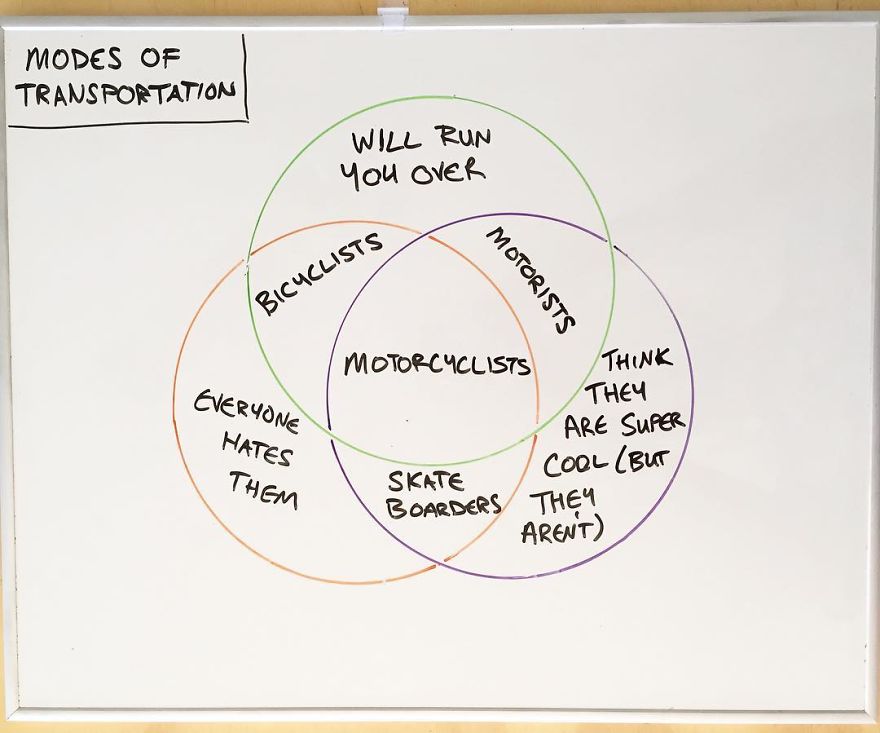 MODES OF
TRANSPORTATION
WILL RUN
YOU OVER
BICYCLISTS
MOTORISTS
MOTORCYCLISTS
EVERYONE
HATES
THEM
THINK
THEY
ARE SUPER
COOL (BUT
THEY
AREN'T)
SKATE
BOARDERS